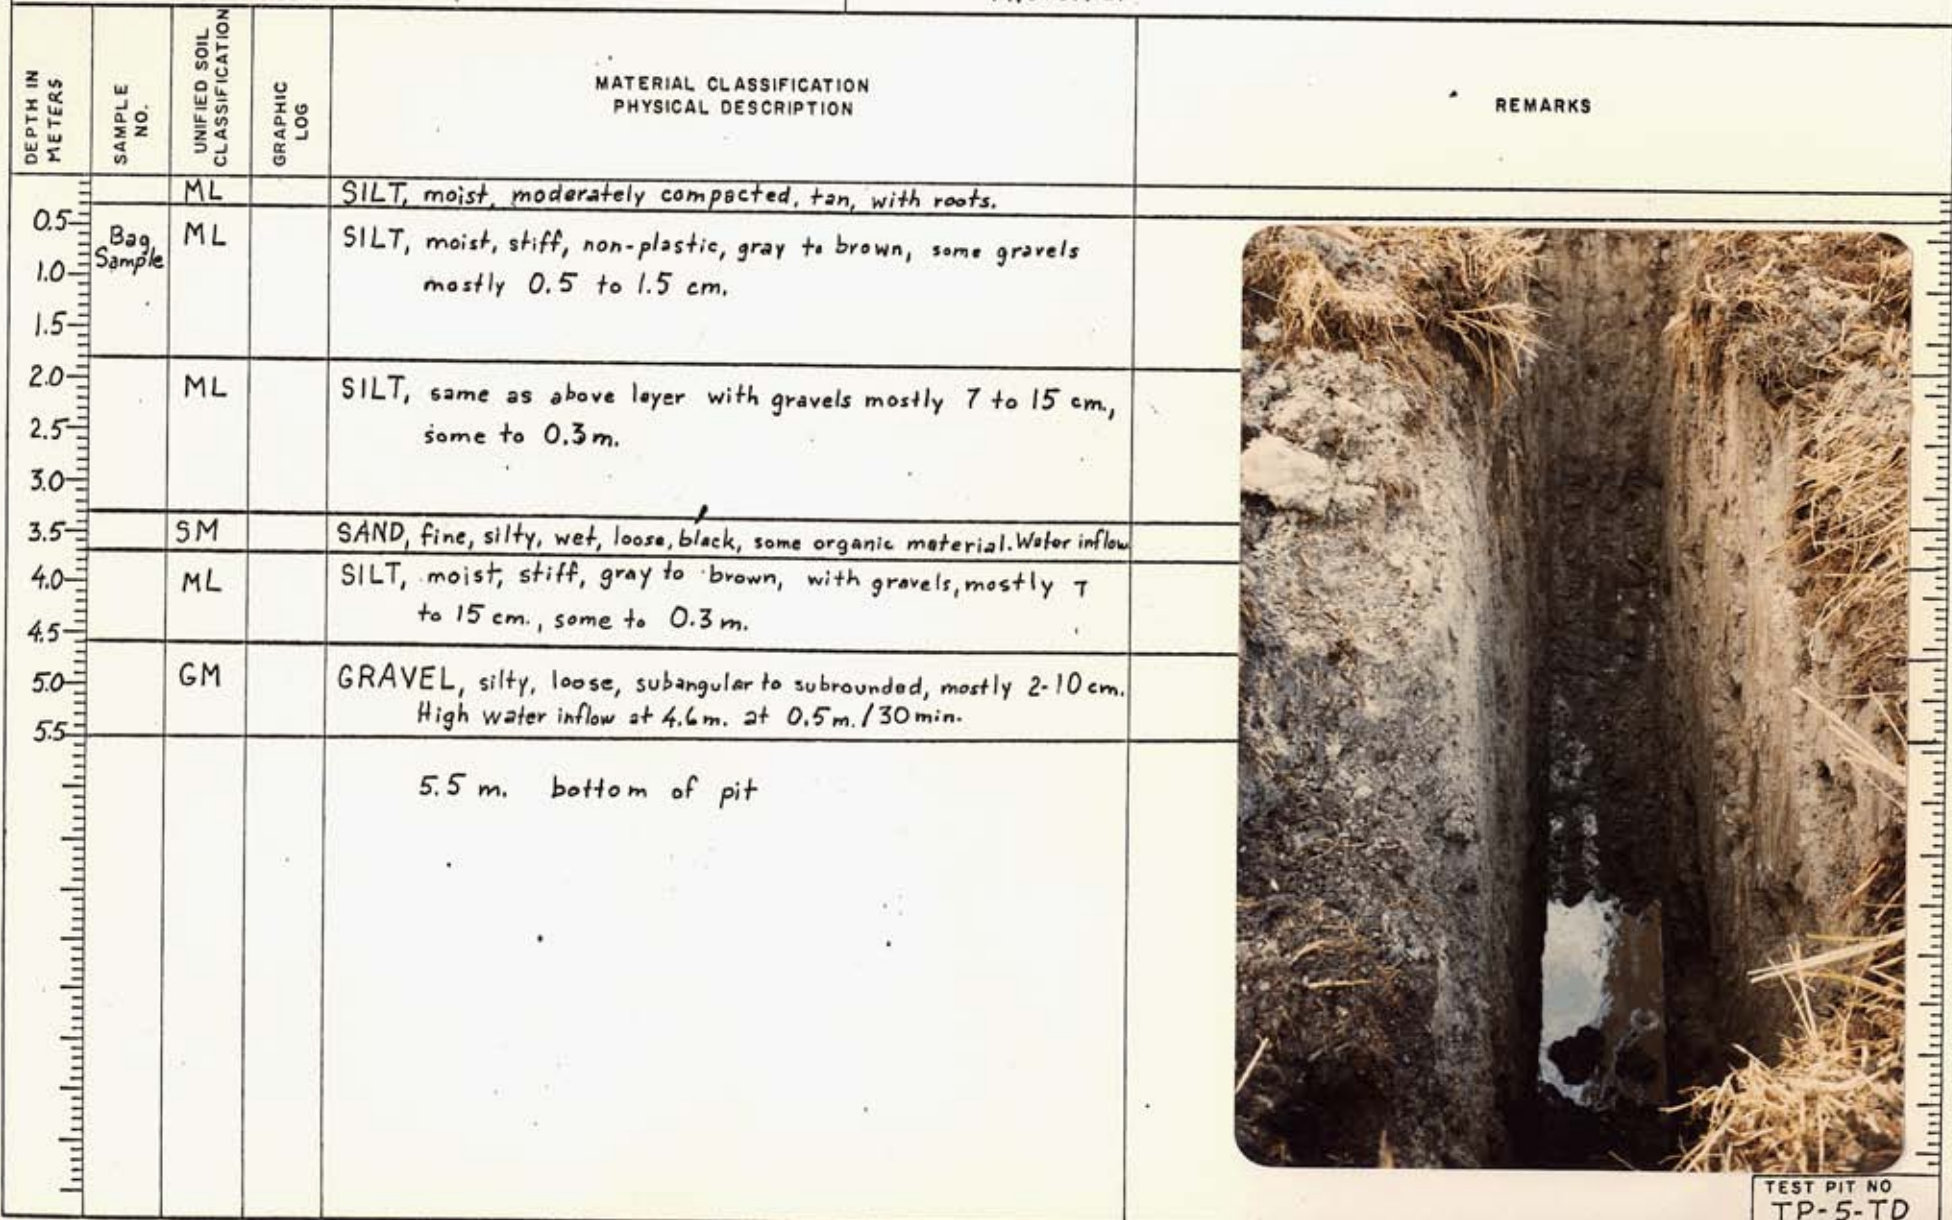 DEPTH IN
METERS
SAMPLE
NO.
UNIFIED SOIL
CLASSIFICATION
GRAPHIC
LOG
MATERIAL CLASSIFICATION
PHYSICAL DESCRIPTION
REMARKS
ML
SILT, moist, moderately compacted, tan, with roots.
0.5
Bag
Sample
ML
SILT, moist, stiff, non-plastic, gray to brown, some gravels
1.0
mostly 0.5 to 1.5 cm.
1.5
2.0
ML
SILT, same as above layer with gravels mostly 7 to 15 cm.,
2.5
some to 0.3 m.
3.0
3.5
SM
SAND, fine, silty, wet, loose, black, some organic material. Water inflow
4.0
ML
SILT, moist, stiff, gray to brown, with gravels, mostly 7
4.5
to 15 cm., some to 0.3 m.
5.0
GM
GRAVEL, silty, loose, subangular to subrounded, mostly 2-10 cm.
High water inflow at 4.6 m. at 0.5 m./30 min.
5.5
5.5 m. bottom of pit
TEST PIT NO
TP-5-TD